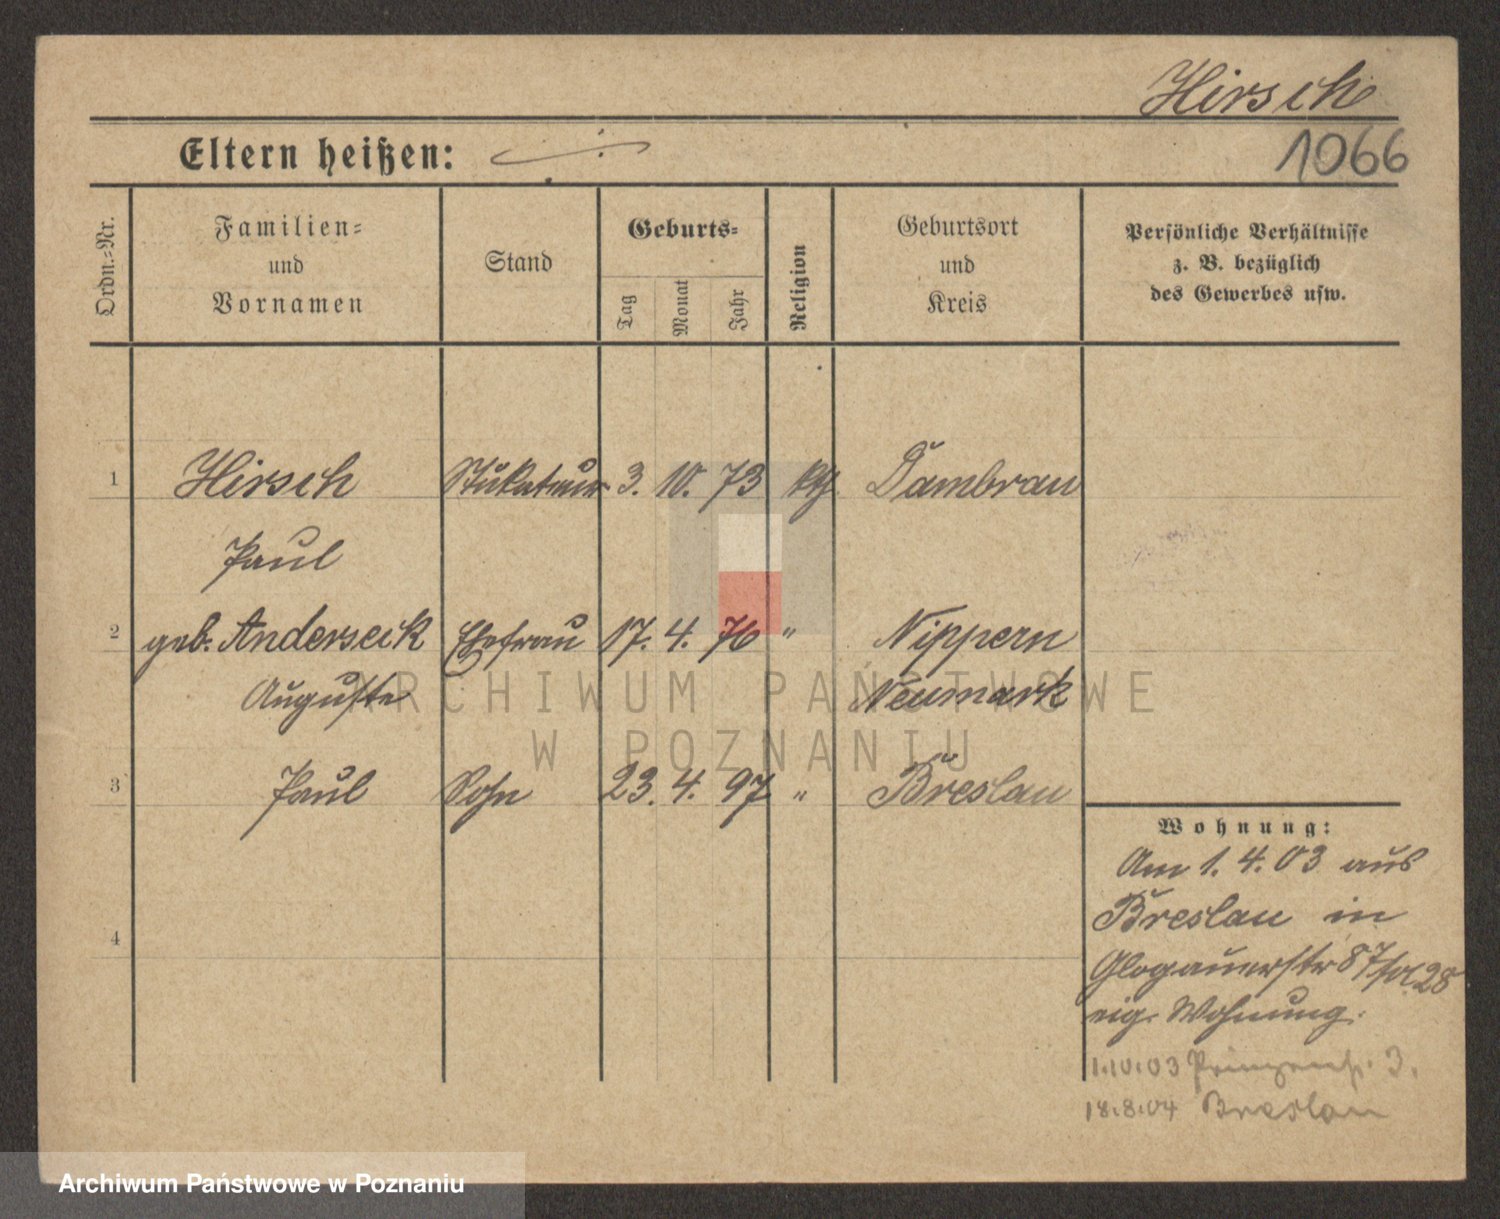 Hirsch
1066
Eltern heißen:
Ordn.-Nr.
Familien-
und
Vornamen
Stand
Geburts-
Tag
Monat
Jahr
Religion
Geburtsort
und
Kreis
Persönliche Verhältnisse
z. B. bezüglich
des Gewerbes usw.
1 Hirsch Stukateur 3. 10. 73 kth Dambrau
Paul
2 geb. Anderseck Ehefrau 17. 4. 76 " Nippern
Auguste Neumark
3 Paul Sohn 23. 4. 97 " Breslau
4
Wohnung:
Am 1. 4. 03 aus
Breslau in
Glogauerstr 87 28
eig. Wohnung.
1.10.03 Prinzenstr. 3.
18.8.04 Breslau
ARCHIWUM PAŃSTWOWE
W POZNANIU
Archiwum Państwowe w Poznaniu